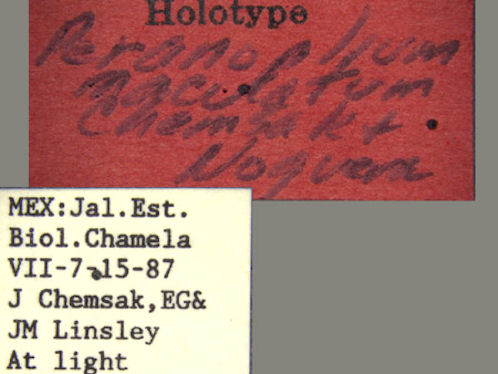 Holotype
Peranoplium
maculatum
Chemsak &
Noguera
MEX:Jal.Est.
Biol.Chamela
VII-7-15-87
J Chemsak,EG&
JM Linsley
At light